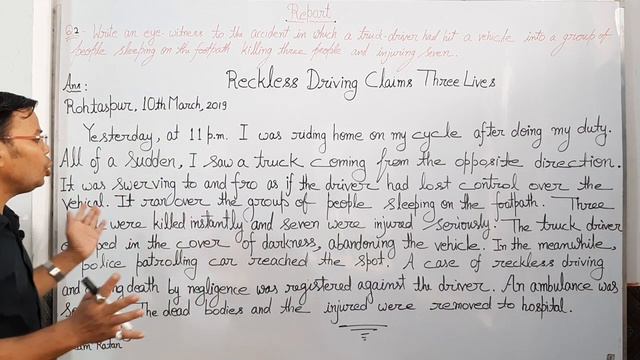 Report
Q2. Write an eye-witness to the accident in which a truck-driver had hit a vehicle into a group of
people sleeping on the footpath killing three people and injuring seven.
Ans:
Reckless Driving Claims Three Lives
Rohtaspur, 10th March, 2019
Yesterday, at 11 p.m. I was riding home on my cycle after doing my duty.
All of a sudden, I saw a truck coming from the opposite direction.
It was swerving to and fro as if the driver had lost control over the
vehical. It ran over the group of people sleeping on the footpath. Three
were killed instantly and seven were injured seriously. The truck driver
in the cover of darkness, abandoning the vehicle. In the meanwhile,
police patrolling car reached the spot. A case of reckless driving
and death by negligence was registered against the driver. An ambulance was
The dead bodies and the injured were removed to hospital.
Ratan